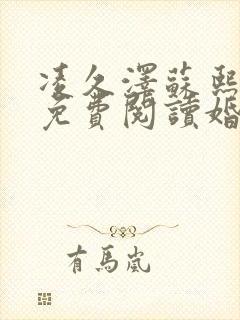 凌久澤蘇熙
免費閱讀婚
有馬嵐